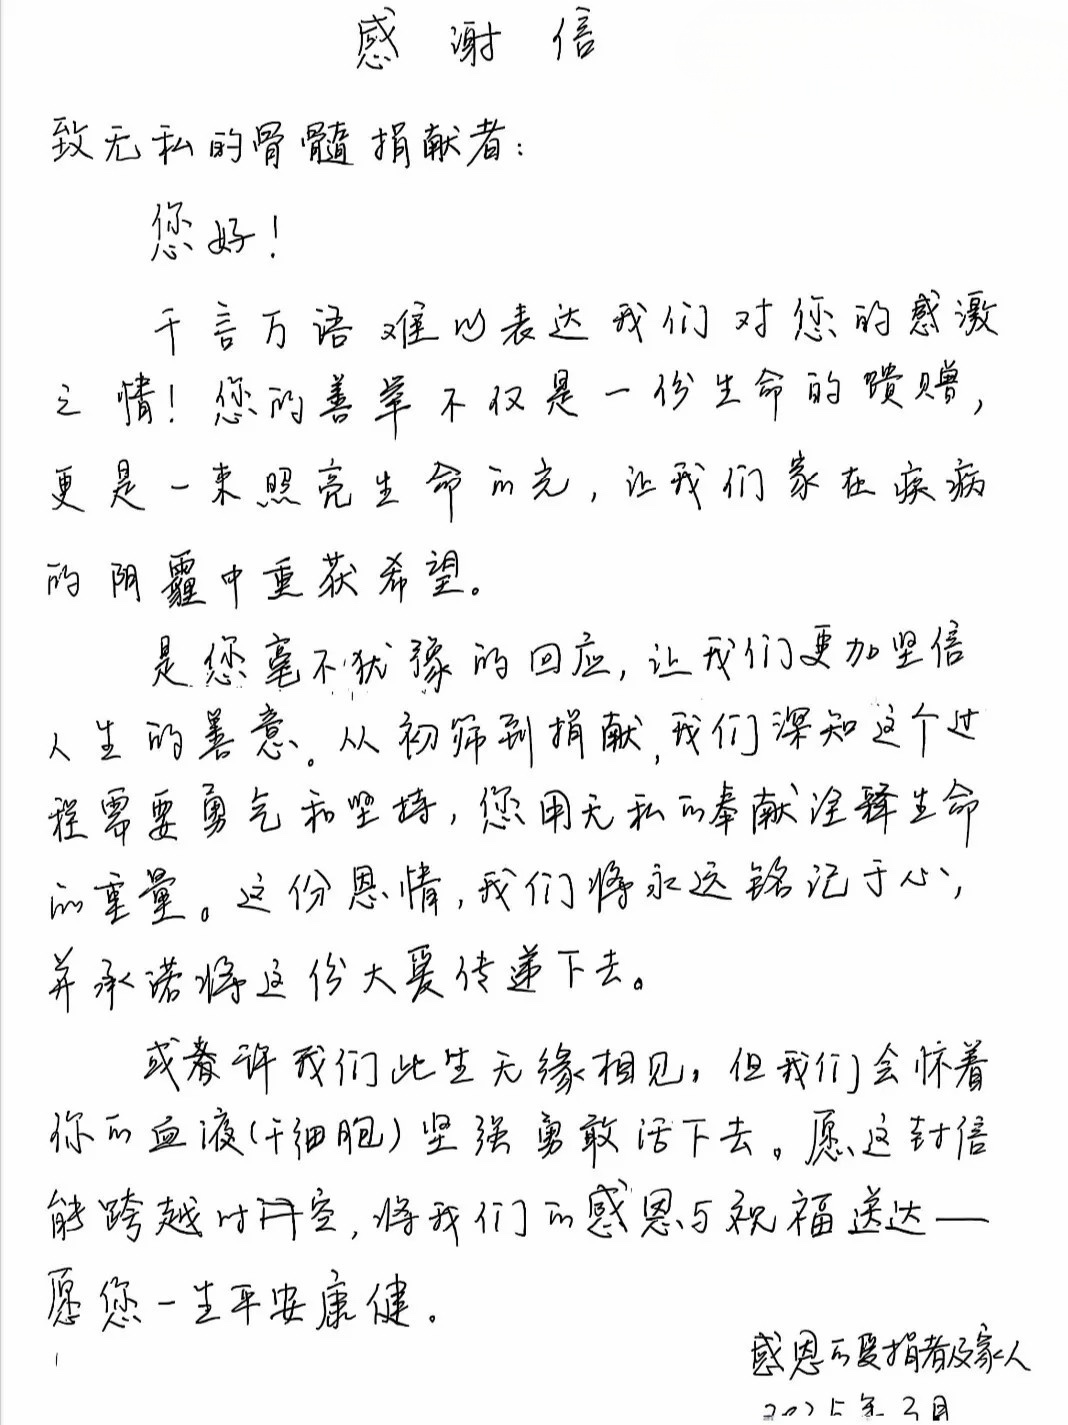 感谢信
致无私的骨髓捐献者：
您好！
千言万语难以表达我们对您的感激
之情！您的善举不仅是一份生命的馈赠，
更是一束照亮生命的光，让我们家在疾病
的阴霾中重获希望。
是您毫不犹豫的回应，让我们更加坚信
人生的善意。从初筛到捐献，我们深知这个过
程需要勇气和坚持，您用无私的奉献诠释生命
的重量。这份恩情，我们将永远铭记于心，
并承诺将这份大爱传递下去。
或者许我们此生无缘相见，但我们会怀着
你的血液（干细胞）坚强勇敢活下去。愿这封信
能跨越时空，将我们的感恩与祝福送达——
愿您一生平安康健。
感恩的受捐者及家人
2025年3月